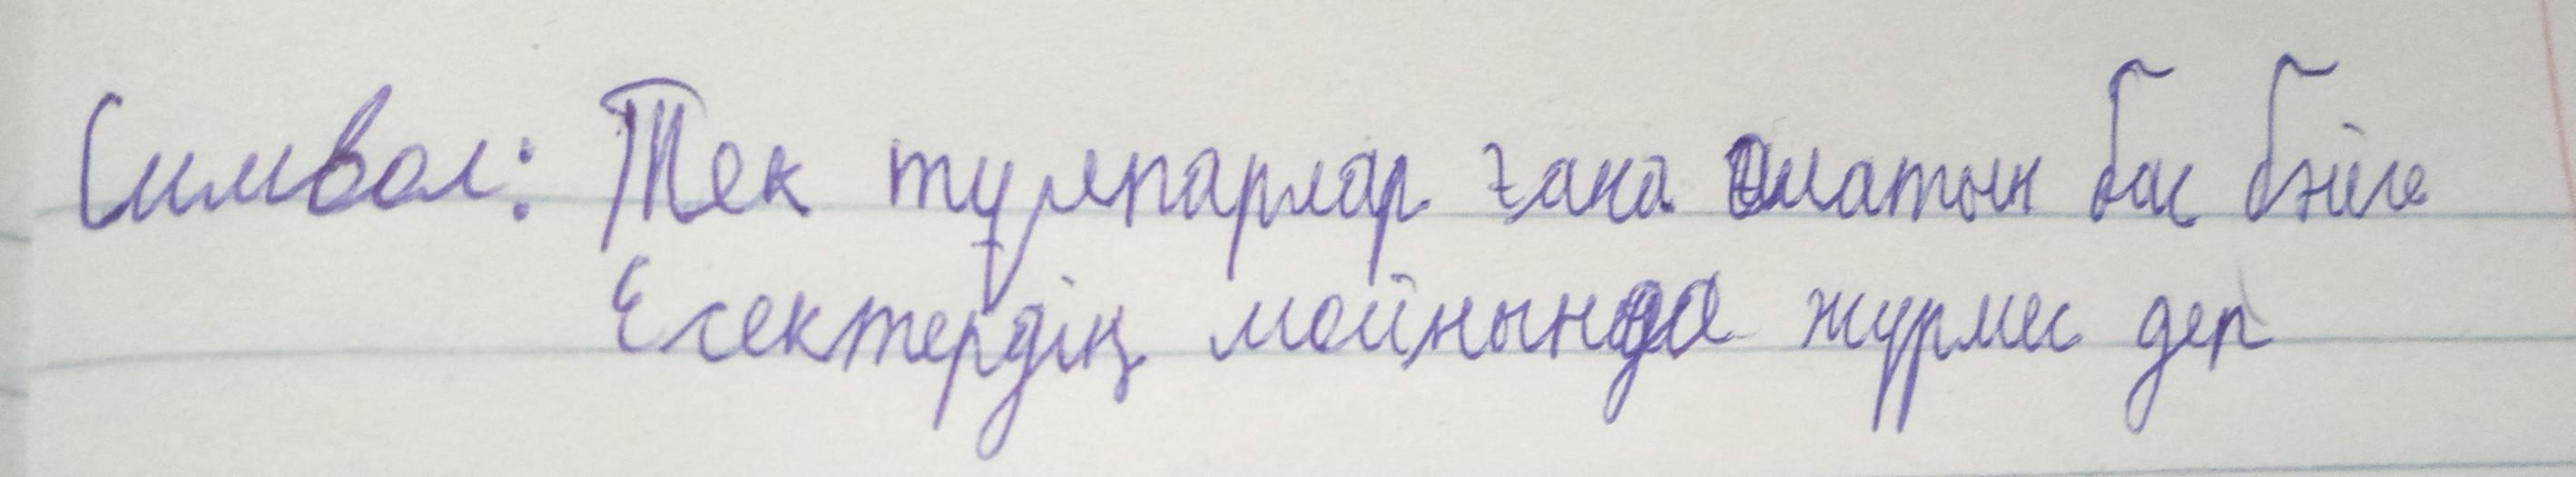 Символ: Тек тұлпарлар ғана алатын бас бәйге
Есектердің мойнында жүрмес деп